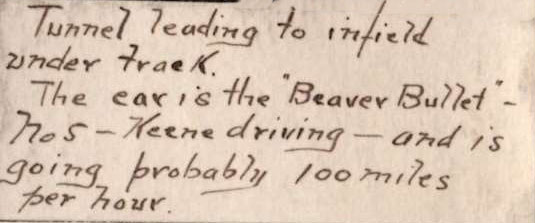 Tunnel leading to infield
under track.
The car is the "Beaver Bullet" -
No 5 - Keene driving - and is
going probably 100 miles
per hour.